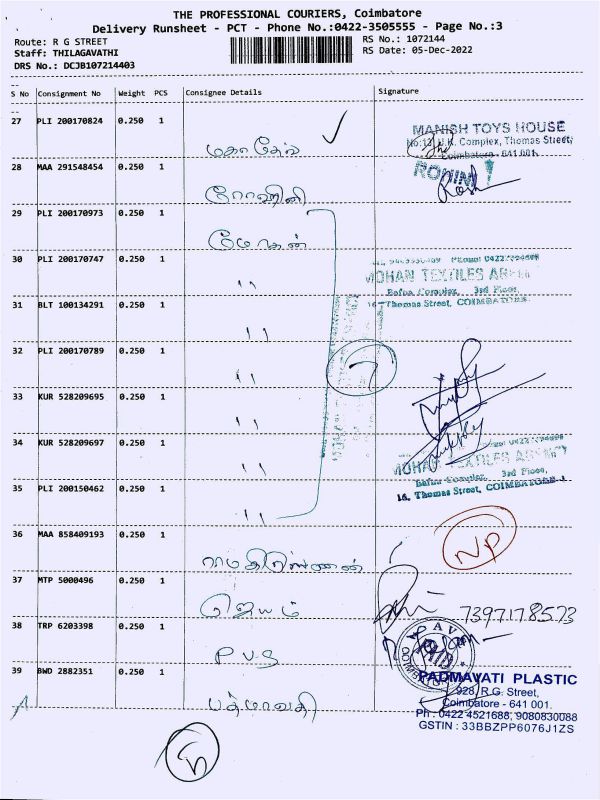 THE PROFESSIONAL COURIERS, Coimbatore
Delivery Runsheet - PCT - Phone No.:0422-3505555 - Page No.:3
Route: R G STREET
RS No.: 1072144
Staff: THILAGAVATHI
RS Date: 05-Dec-2022
DRS No.: DCJB107214403
S No Consignment No Weight PCS Consignee Details Signature
27 PLI 200170824 0.250 1
MANISH TOYS HOUSE
Complex, Thomas Street,
Coimbatore - 641 001.
28 MAA 291548454 0.250 1
ரோஹினி
ROHINI
29 PLI 200170973 0.250 1
மோகன்
30 PLI 200170747 0.250 1
"
MOHAN TEXTILES AGENCY
Bafna Complex, 3rd Floor,
16, Thomas Street, COIMBATORE-1
31 BLT 100134291 0.250 1
"
32 PLI 200170789 0.250 1
"
7
33 KUR 528209695 0.250 1
"
34 KUR 528209697 0.250 1
"
MOHAN TEXTILES AGENCY
Bafna Complex, 3rd Floor,
16, Thomas Street, COIMBATORE-1
35 PLI 200150462 0.250 1
"
36 MAA 858409193 0.250 1
NP
37 MTP 5000496 0.250 1
ஜெயம்
7397178573
38 TRP 6203398 0.250 1
P.V.S
39 BWD 2882351 0.250 1
பத்மாவதி
PADMAVATI PLASTIC
928, R.G. Street,
Coimbatore - 641 001.
Ph : 0422 4521688, 9080830088
GSTIN : 33BBZPP6076J1ZS